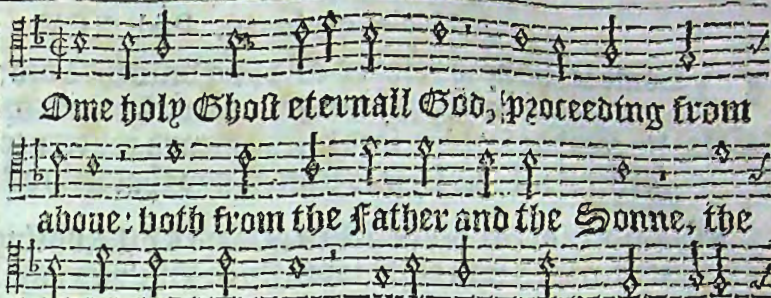 Ome holy Ghost eternall God, proceeding from
aboue: both from the Father and the Sonne, the